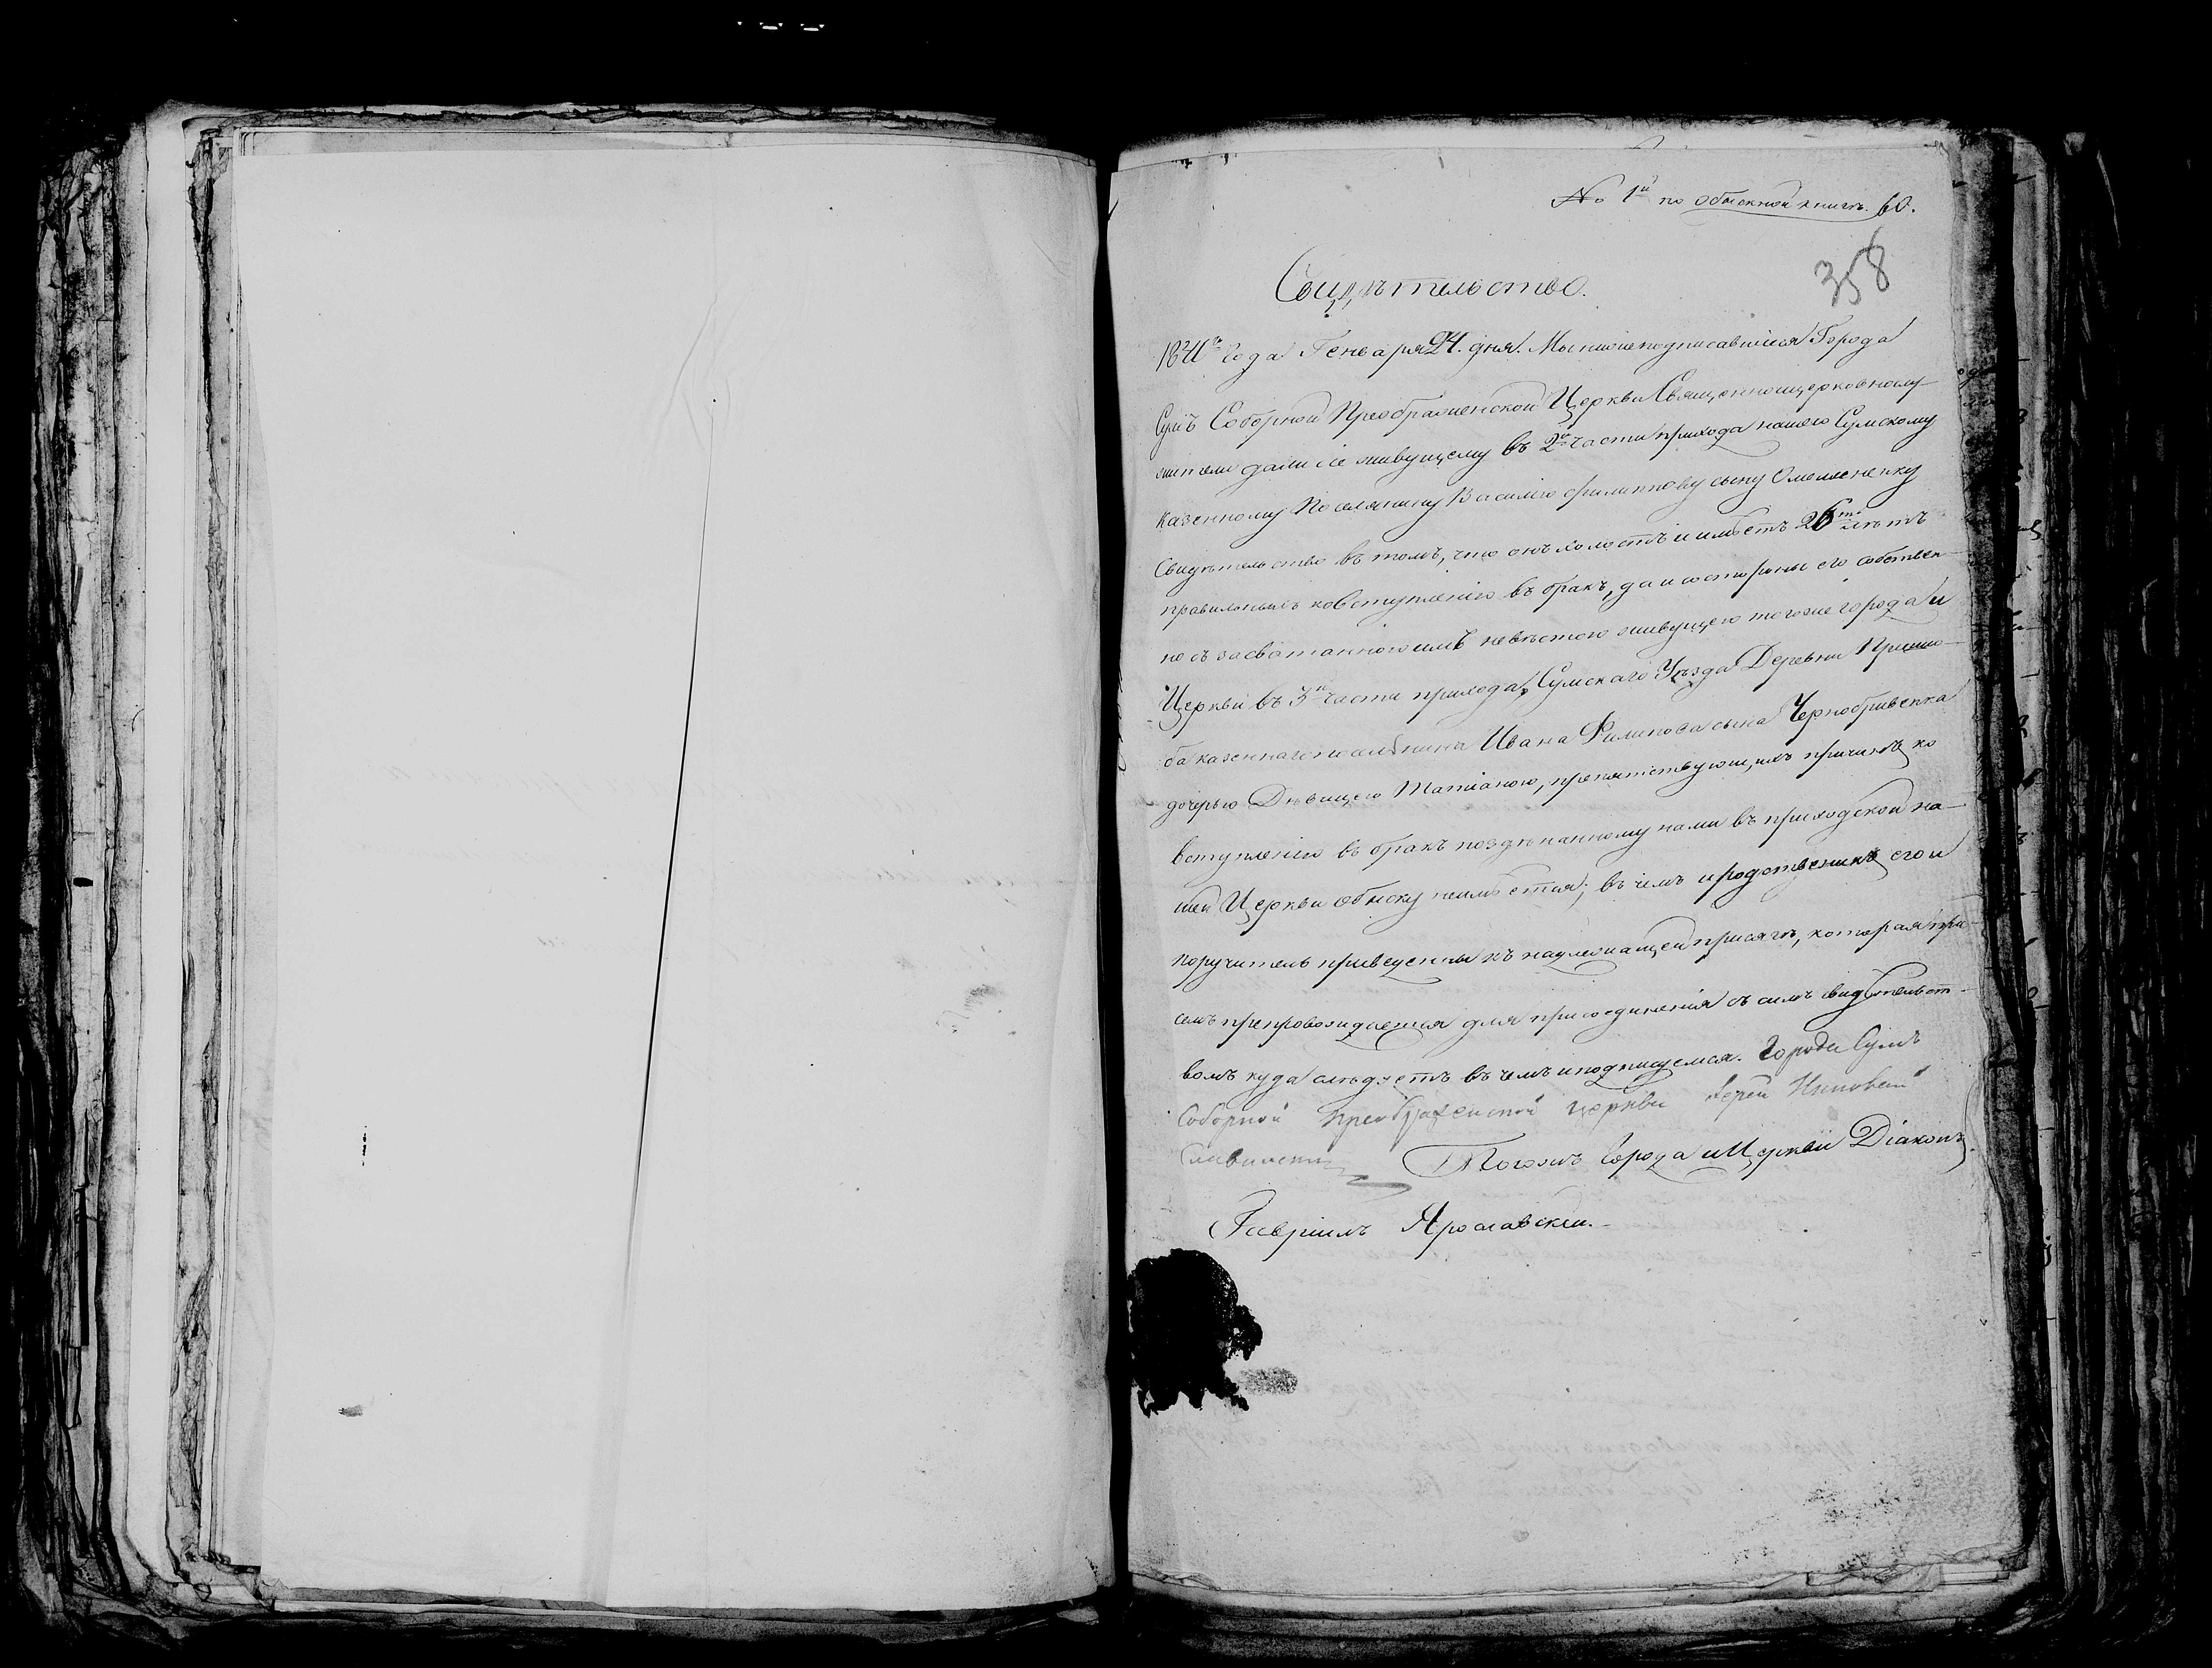 № 1й по обыскной книгѣ. 60.
358
Свидѣтельство.
года Генваря 24. дня. Мы нижеподписавшіеся Города
Сумъ Соборной Преображенской Церкви Священноцерковнослу-
жители дали сіе живущему въ 2й части прихода нашего Сумскому
казенному Поселянину Василію Филиппову сыну Омелененку
Свидѣтельство въ томъ, что онъ холостъ и имѣетъ 26ть лѣтъ
правильныхъ ко вступленію въ бракъ, да и со стороны его собствен-
но съ засватанною имъ невѣстою живущею тогоже города и
Церкви въ 3й части прихода, Сумскаго Уѣзда Деревни
казеннаго поселянина Ивана Филипова сына Чернобривенка
дочерью Дѣвицею Татіаною, препятствующихъ причинъ ко
вступленію въ бракъ по здѣланному нами въ приходской на-
шей Церкви обыску неимѣется; въ чемъ и родственники его и
поручитель приведены къ надлежащей присягѣ, которая при
семъ препровождается для присоединенія съ симъ свидѣтельст-
вомъ куда слѣдуетъ въ чемъ и подписуемся. Города Сумъ
Соборной Преображенской церкви Іерей
Тогожъ Города и Церкви Діаконъ
Гавріилъ Ярославскій.